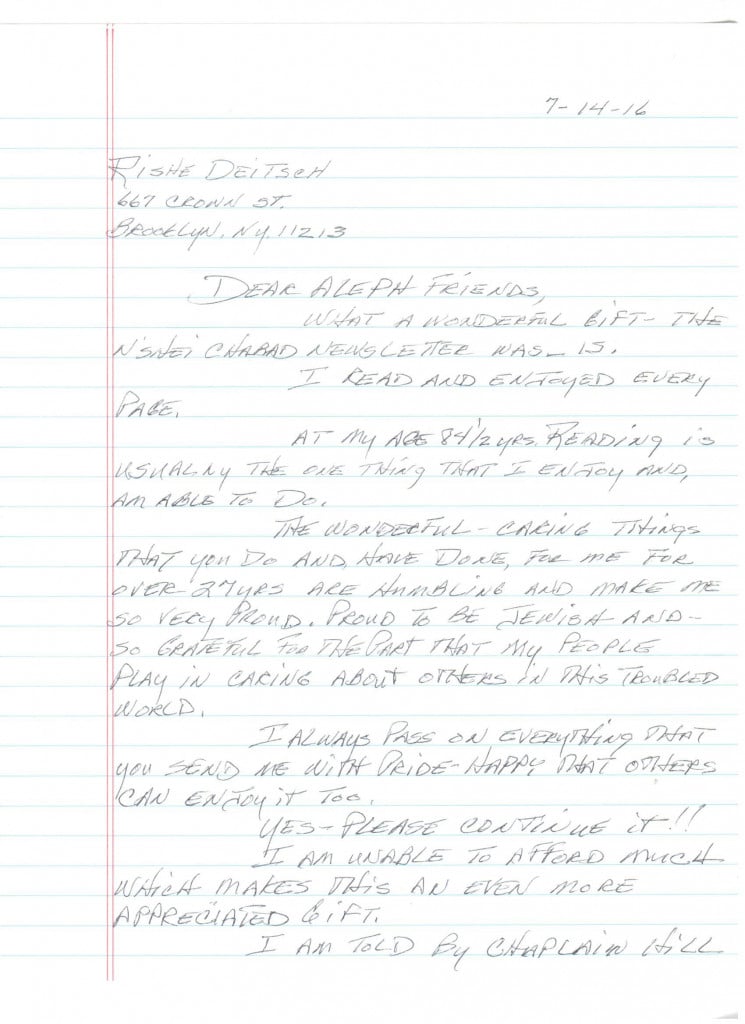 7-14-16
RISHE DEITSCH
667 CROWN ST.
BROOKLYN, NY. 11213
DEAR ALEPH FRIENDS,
WHAT A WONDERFUL GIFT- THE
N'SHEI CHABAD NEWSLETTER WAS - IS.
I READ AND ENJOYED EVERY
PAGE.
AT MY AGE 84 1/2 YRS. READING IS
USUALNY THE ONE THING THAT I ENJOY AND,
AM ABLE TO DO.
THE WONDERFUL - CARING THINGS
THAT YOU DO AND, HAVE DONE, FOR ME FOR
OVER-27 YRS ARE HUMBLING AND MAKE ME
SO VERY PROUD. PROUD TO BE JEWISH AND-
SO GRATEFUL FOR THE PART THAT MY PEOPLE
PLAY IN CARING ABOUT OTHERS IN THIS TROUBLED
WORLD.
I ALWAYS PASS ON EVERYTHING THAT
YOU SEND ME WITH PRIDE-HAPPY THAT OTHERS
CAN ENJOY IT TOO.
YES-PLEASE CONTINUE IT!!
I AM UNABLE TO AFFORD MUCH
WHICH MAKES THIS AN EVEN MORE
APPRECIATED GIFT.
I AM TOLD BY CHAPLAIN HILL